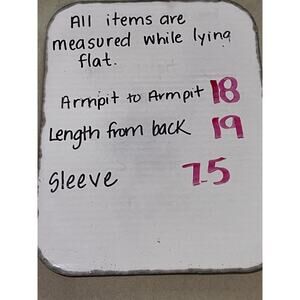 All items are
measured while lying
flat.
Armpit to Armpit 18
Length from back 19
Sleeve 7.5